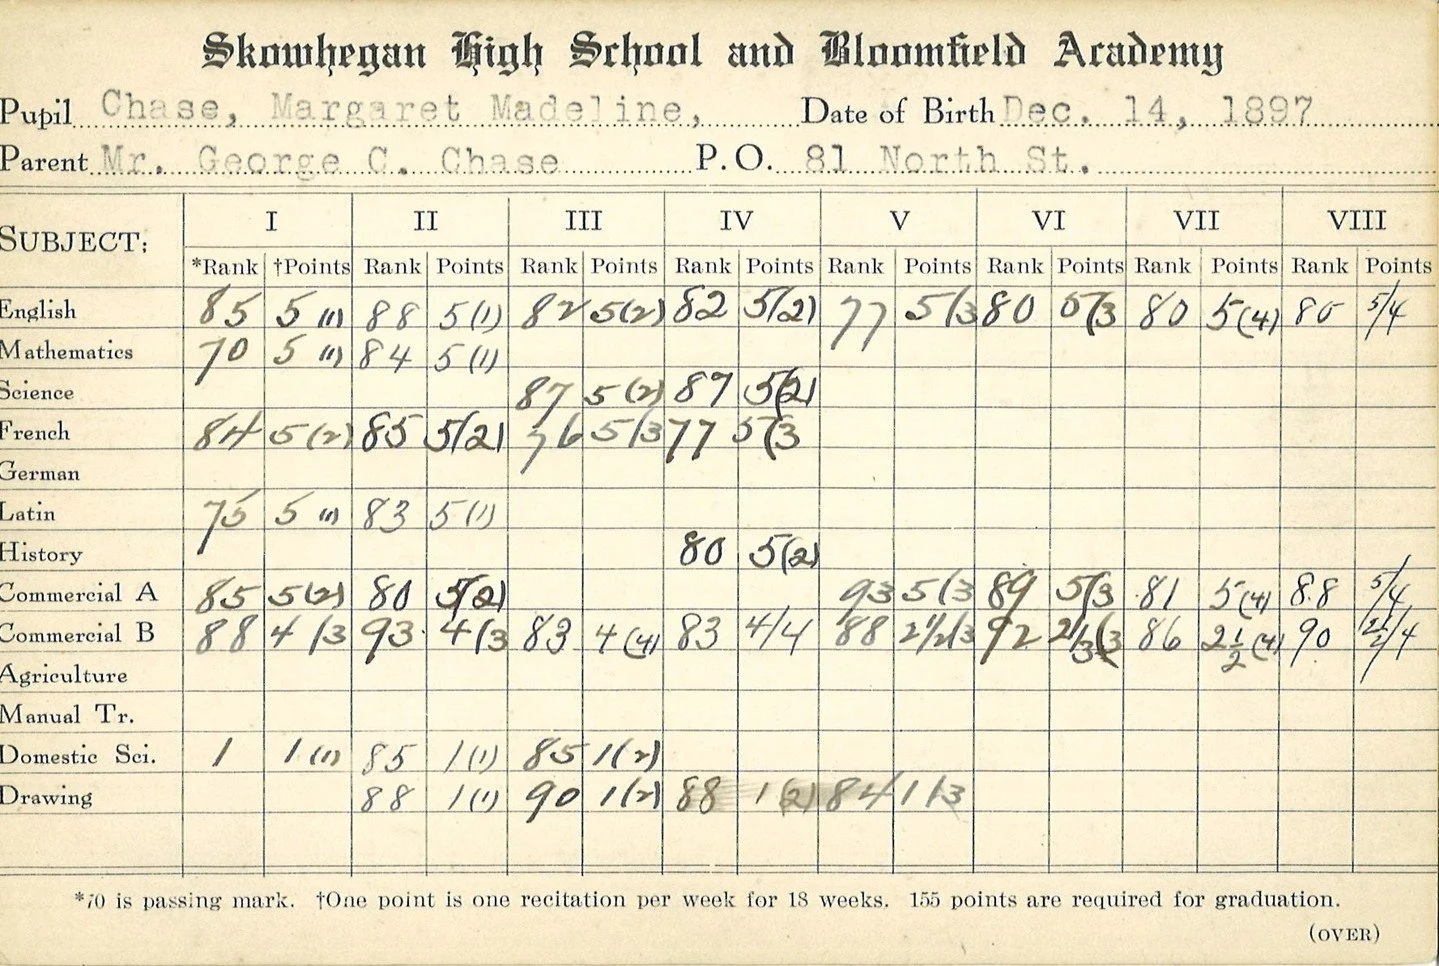 Skowhegan High School and Bloomfield Academy
Pupil Chase, Margaret Madeline, Date of Birth Dec. 14, 1897
Parent Mr. George C. Chase P.O. 81 North St.
SUBJECT: I II III IV V VI VII VIII
*Rank †Points Rank Points Rank Points Rank Points Rank Points Rank Points Rank Points Rank Points
English 85 5 (1) 88 5 (1) 82 5 (2) 82 5 (2) 77 5 /3 80 5 (3 80 5 (4) 80 5/4
Mathematics 70 5 (1) 84 5 (1)
Science 87 5 (2) 87 5 (2)
French 84 5 (2) 85 5 (2) 76 5 /3 77 5 (3
German
Latin 75 5 (1) 83 5 (1)
History 80 5 (2)
Commercial A 85 5 (2) 80 5 (2) 93 5 /3 89 5 (3 81 5 (4) 88 5/4
Commercial B 88 4 /3 93 4 /3 83 4 (4) 83 4/4 88 2 1/2 /3 92 (3 86 2 1/2 (4) 90 2 1/2 /4
Agriculture
Manual Tr.
Domestic Sci. 1 1 (1) 85 1 (1) 85 1 (2)
Drawing 88 1 (1) 90 1 (2) 88 1 (2) 84 1 /3
*70 is passing mark. †One point is one recitation per week for 18 weeks. 155 points are required for graduation.
(OVER)